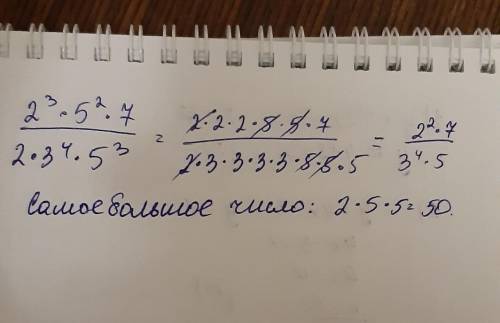 2³·5²·7 / 2·3⁴·5³ = 2·2·2·5·5·7 / 2·3·3·3·3·5·5·5 = 2²·7 / 3⁴·5
Самое большое число: 2·5·5=50.